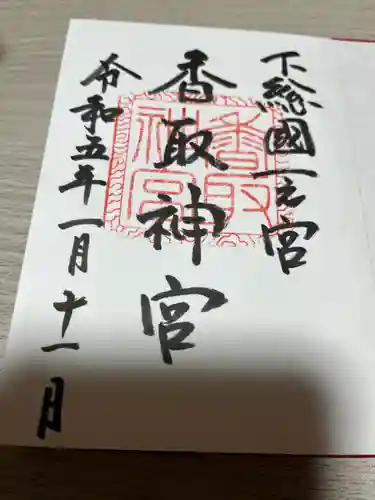 下総國一之宮
香取神宮
令和五年一月十一月
香取
神宮